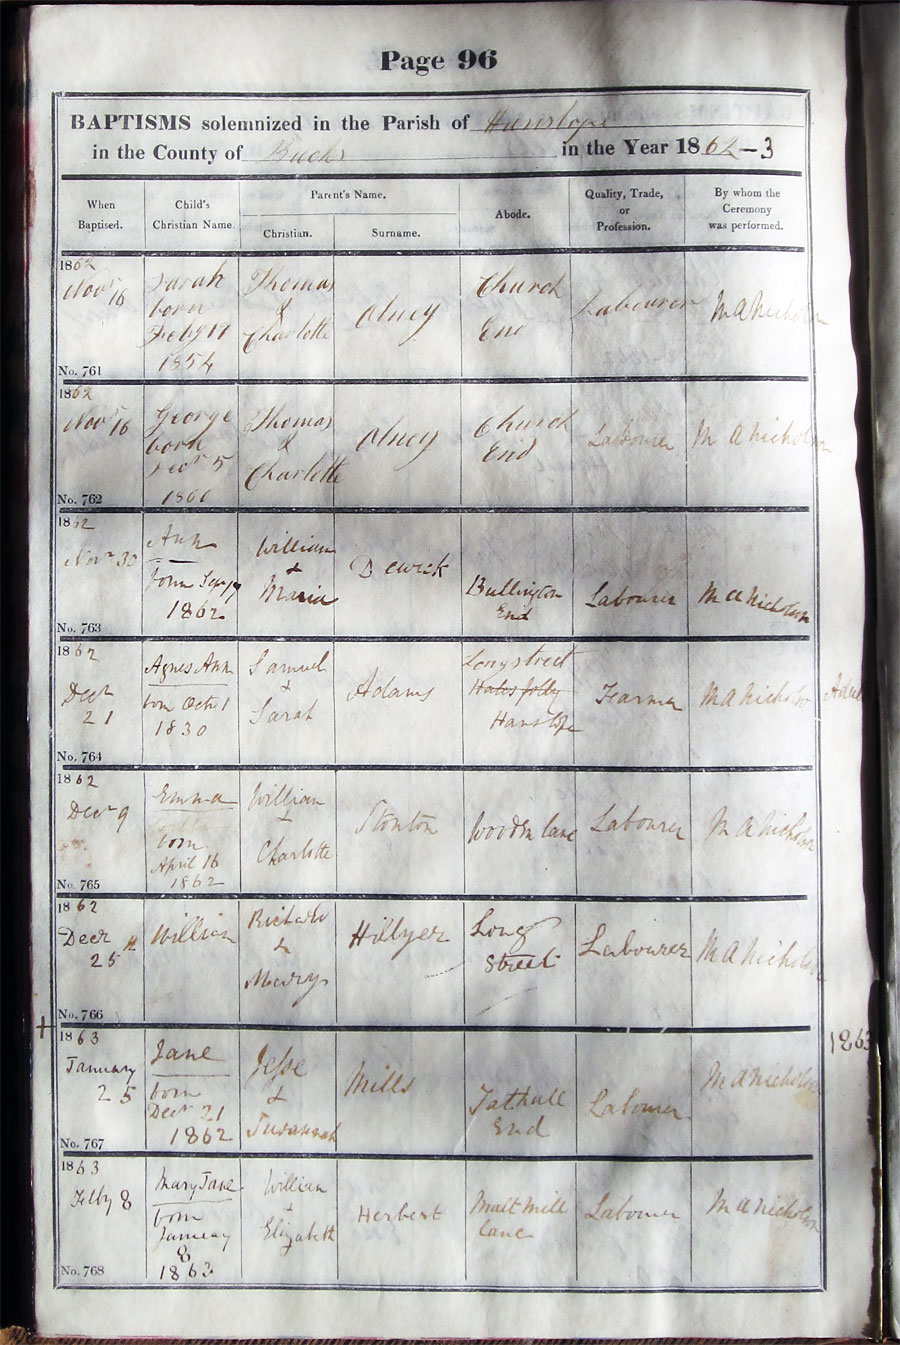 Page 96
BAPTISMS solemnized in the Parish of Hanslope
in the County of Bucks in the Year 1862-3
When Baptised. Child's Christian Name. Parent's Name. Christian. Surname. Abode. Quality, Trade, or Profession. By whom the Ceremony was performed.
1862
Novr 16
Sarah
born
Feby 17
1854
Thomas
&
Charlotte
Olney
Church
End
Labourer
M A Nicholson
No. 761
1862
Novr 16
George
born
Decr 5
1860
Thomas
&
Charlotte
Olney
Church
End
Labourer
M A Nicholson
No. 762
1862
Novr 30
Ann
born Sep
1862
William
&
Maria
Dewick
Bullington
End
Labourer
M A Nicholson
No. 763
1862
Decr
21
Agnes Ann
born Octr 1
1830
Samuel
&
Sarah
Adams
Longstreet
Hales folly
Hanslope
Farmer
M A Nicholson
Adult
No. 764
1862
Decr 9
Emma
born
April 16
1862
William
&
Charlotte
Stonton
Wooden lane
Labourer
M A Nicholson
No. 765
1862
Decr
25
William
Richard
&
Mary
Hillyer
Long
Street
Labourer
M A Nicholson
No. 766
+
1863
January
25
Jane
born
Decr 21
1862
Jesse
&
Susannah
Mills
Tathall
End
Labourer
M A Nicholson
1863
No. 767
1863
Feby 8
Mary Jane
born
January
8
1863
William
&
Elizabeth
Herbert
Malt Mill
lane
Labourer
M A Nicholson
No. 768